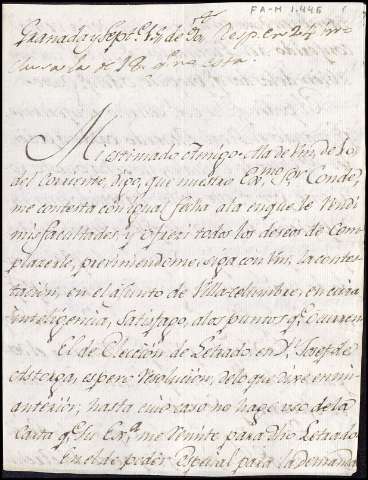 FA-M 1.446
Granada y Sept.e 15 de 90 Resp. en 24 in
clusa la de 18 q.e no esta.
Mi estimado Amigo. A la de Vm. de 10
del Corriente, digo, que nuestro Ex.mo S.or Conde,
me contesta con igual fecha a la en que le rendi
mis facultades, y ofreci todos los deseos de Com-
placerle, previniendome, siga con Vm. la contes-
tacion, en el asunto de Villa-celumbre, en cuia
inteligencia, Satisfago, a los puntos q.e Ocurren
El de Eleccion de Letrado, en D.n Josef de
Astorga, espero resolucion, de lo que dixe en mi
anterior; hasta cuio caso no hago uso de la
Carta q.e Su Ex.a me remite para dho Letrado
En el de poder Especial para la demanda